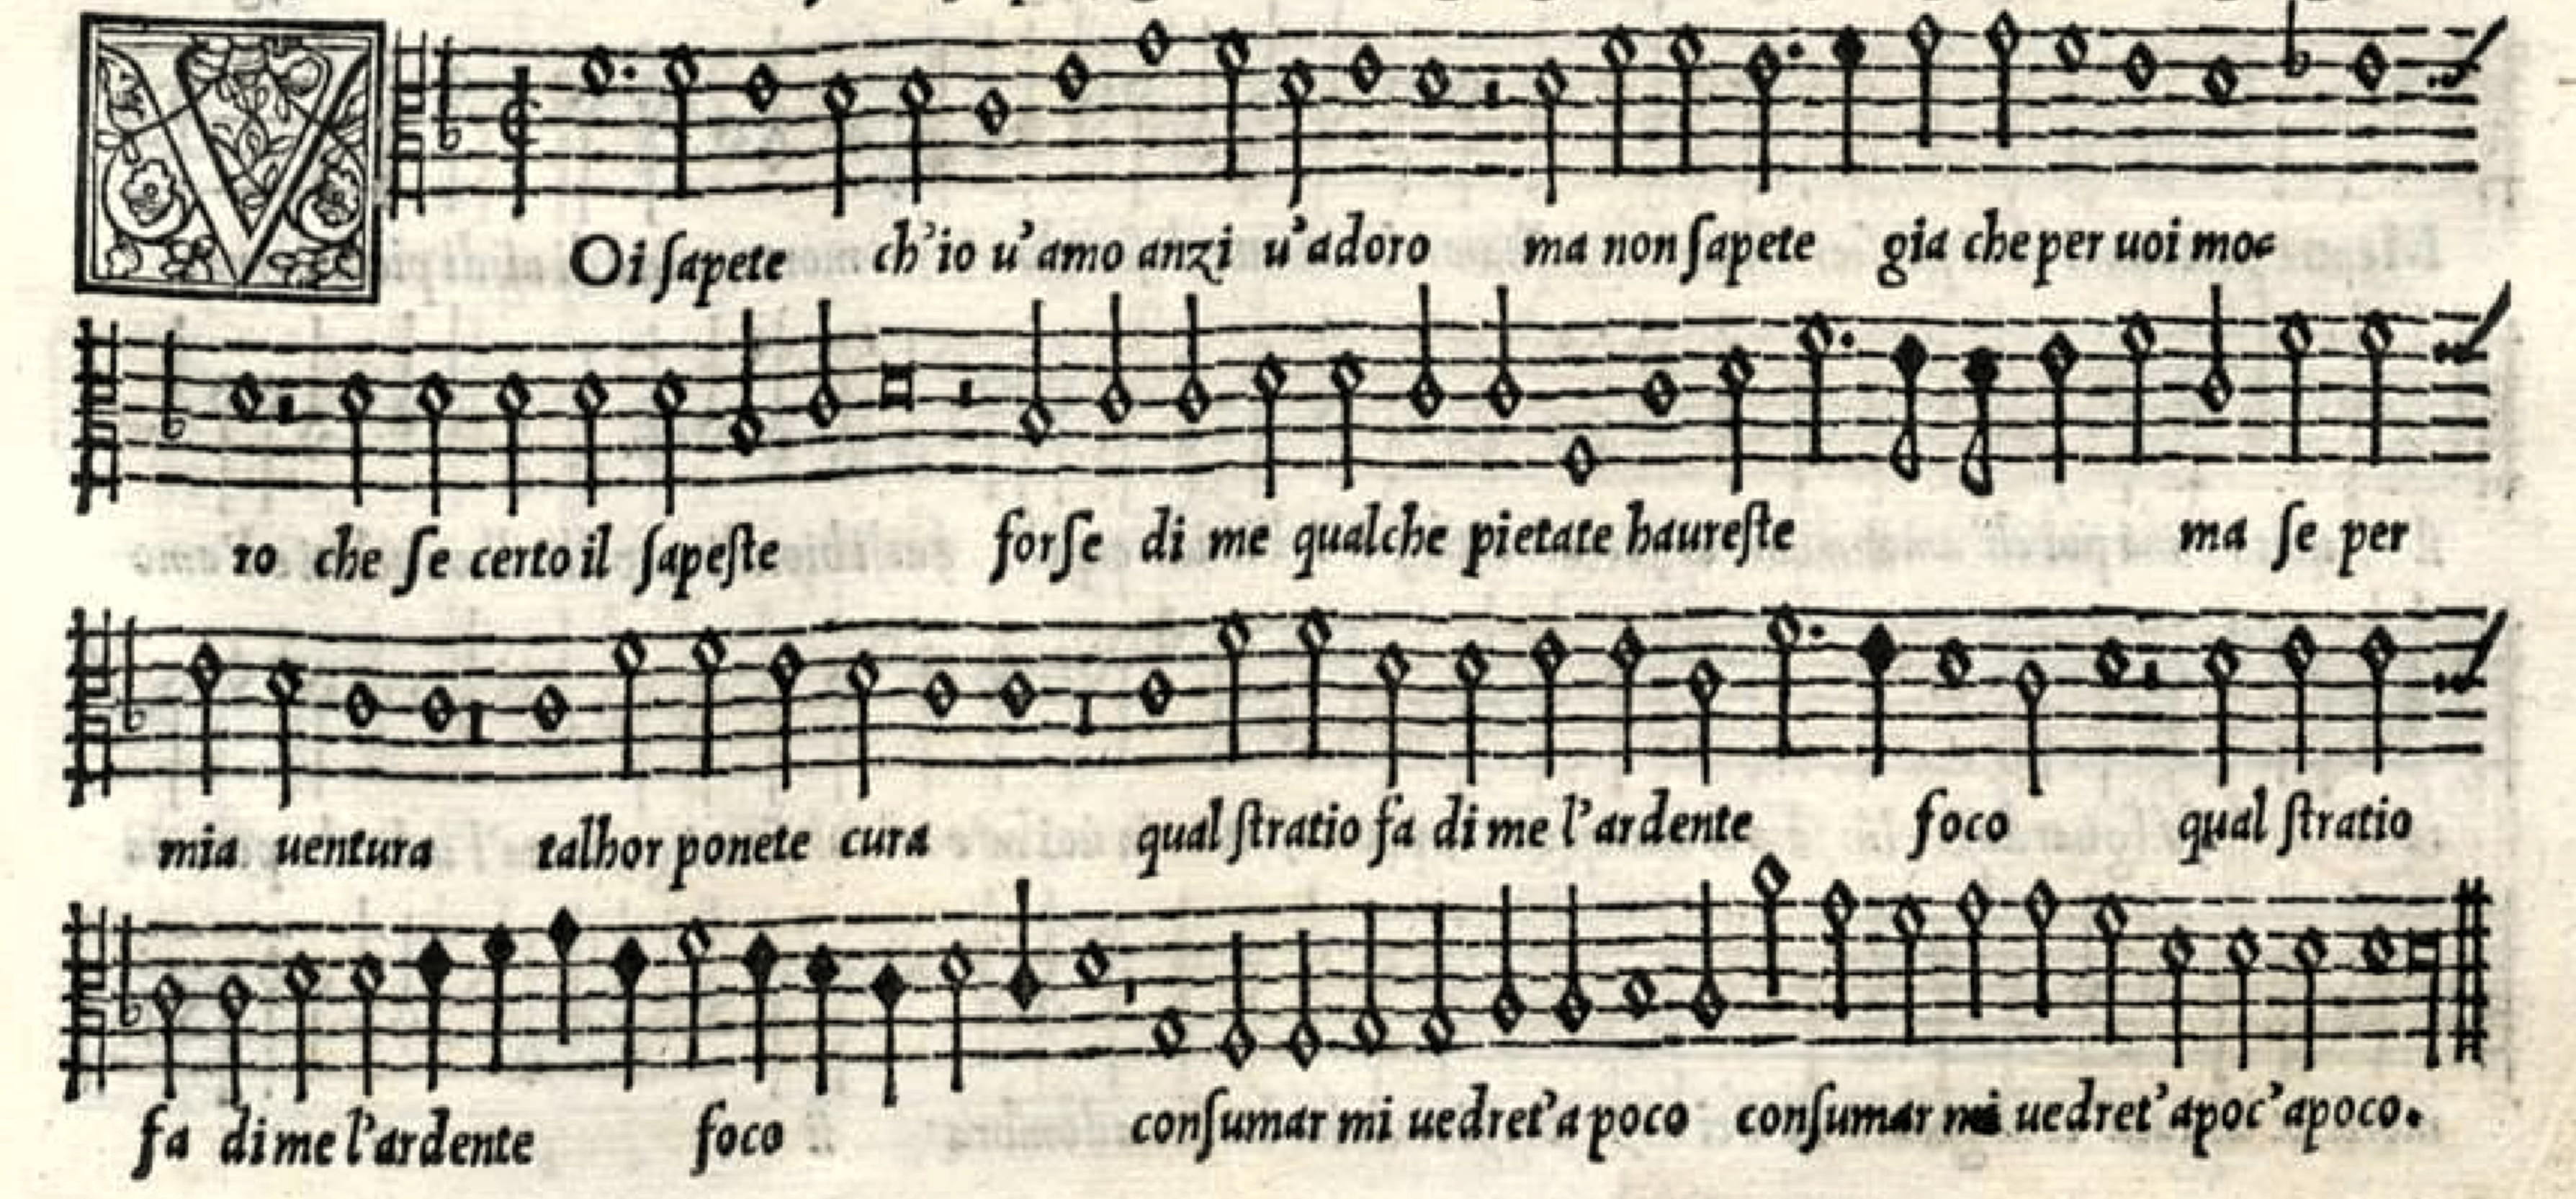 VOi ſapete ch'io u'amo anzi u'adoro ma non ſapete gia che per uoi mo=
ro che ſe certo il ſapeſte forſe di me qualche pietate haureſte ma ſe per
mia uentura talhor ponete cura qual ſtratio fa di me l'ardente foco qual ſtratio
fa di me l'ardente foco conſumar mi uedret'a poco conſumar mi uedret'apoc'apoco.